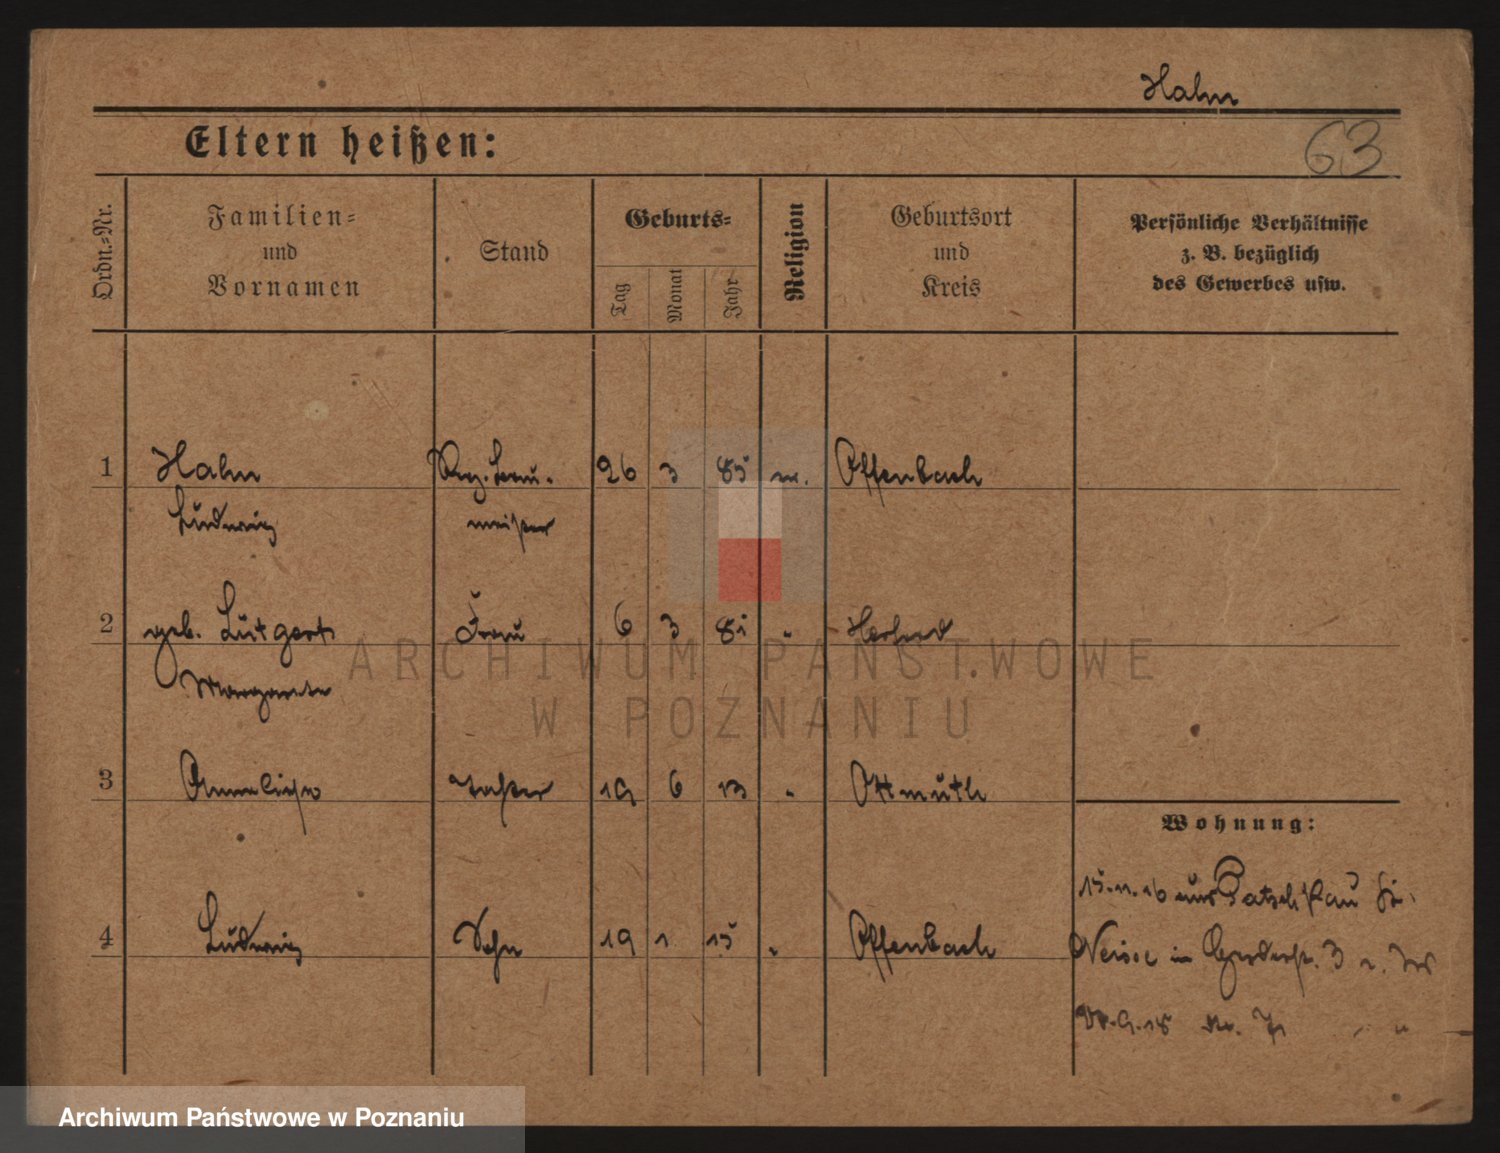 Hahn
63
Eltern heißen:
Ordn.-Nr.
Familien-
und
Vornamen
Stand
Geburts-
Tag
Monat
Jahr
Religion
Geburtsort
und
Kreis
Persönliche Verhältnisse
z. B. bezüglich
des Gewerbes usw.
1 Hahn Reg. Bau- 26 3 85 Offenbach
Ludwig meister
2 geb. Lütgert Frau 6 3 "
Margarete
3 Anneliese Tochter 19 6 13 " Ottmuth
Wohnung:
15.11.16 aus Patschkau
4 Ludwig Sohn 19 1 15 " Offenbach
Neisse in 3
Nr.
ARCHIWUM PAŃSTWOWE
W POZNANIU
Archiwum Państwowe w Poznaniu